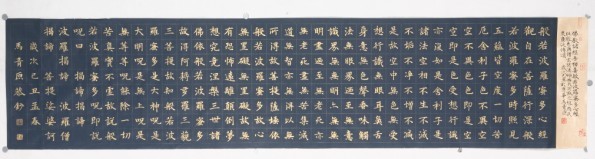 般若波羅蜜多心經
觀自在菩薩行深般
若波羅蜜多時照見
五蘊皆空度一切苦
厄舍利子色不異空
空不異色色即是空
空即是色受想行識
亦復如是舍利子是
諸法空相不生不滅
不垢不淨不增不減
是故空中無色無受
想行識無眼耳鼻舌
身意無色聲香味觸
法無眼界乃至無意
識界無無明亦無無
明盡乃至無老死亦
無老死盡無苦集滅
道無智亦無得以無
所得故菩提薩埵依
般若波羅蜜多故心
無罣礙無罣礙故無
有恐怖遠離顛倒夢
想究竟涅槃三世諸
佛依般若波羅蜜多
故得阿耨多羅三藐
三菩提故知般若波
羅蜜多是大神呪是
大明呪是無上呪是
無等等呪能除一切
苦真實不虛故說般
若波羅蜜多呪即說
呪曰 揭諦揭諦
波羅揭諦 波羅僧
揭諦 菩提娑婆訶
歲次己丑孟春
馬青 恭鈔